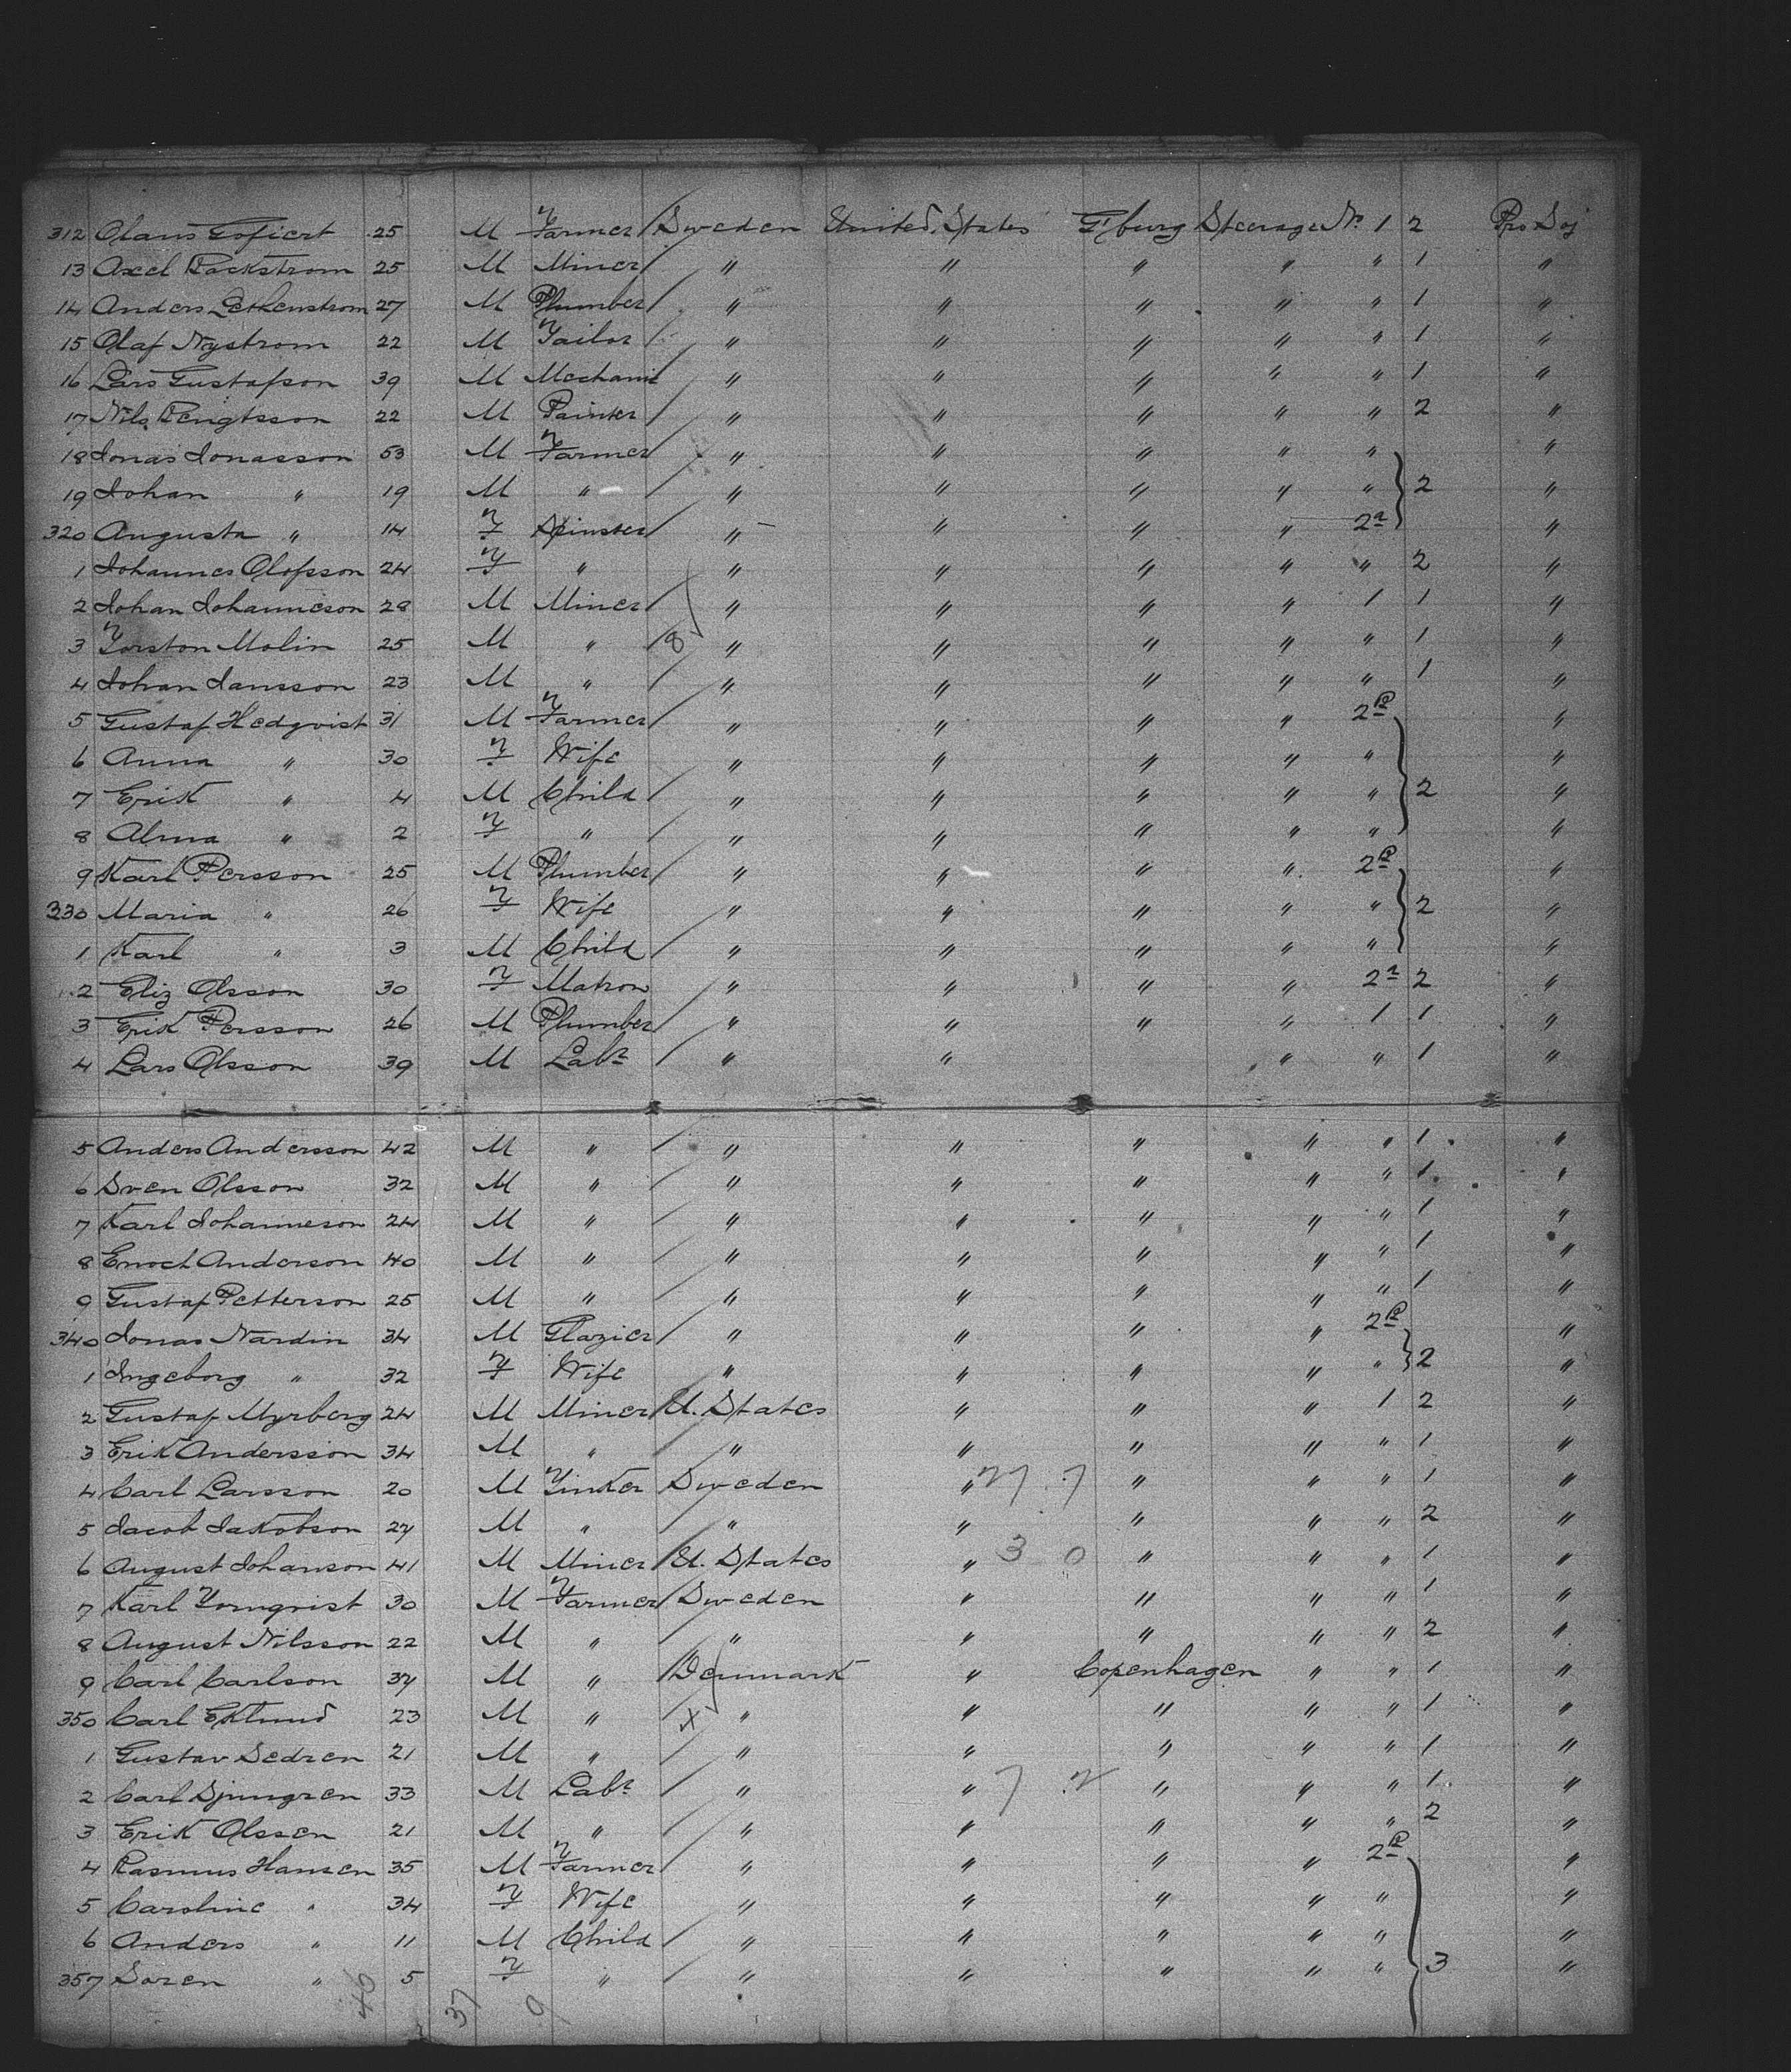 312 Olaus Gofiert 25 M Farmer / Sweden United States G'burg Steerage No. 1 2 Pro Soj
13 Axel Backstrom 25 M Miner / " " " " " 1 "
14 Anders Lethenstrom 27 M Plumber / " " " " " 1 "
15 Olaf Nystrom 22 M Tailor / " " " " " 1 "
16 Lars Gustafson 39 M Mechanic / " " " " " 1 "
17 Nils Bengtsson 22 M Painter / " " " " " 2 "
18 Jonas Jonasson 53 M Farmer / " " " " " "
19 Johan " 19 M " / " " " " " 2 "
320 Augusta " 14 F Spinster / " " " " 2a "
1 Johannes Olofsson 24 F " " " " " " 2 "
2 Johan Johanneson 28 M Miner / " " " " 1 1 "
3 Torston Molin 25 M " / 8 " " " " " 1 "
4 Johan Jansson 23 M " / " " " " " 1 "
5 Gustaf Hedqvist 31 M Farmer / " " " " 2P "
6 Anna " 30 F Wife " " " " " "
7 Erik " 4 M Child / " " " " " 2 "
8 Alma " 2 F " / " " " " " "
9 Karl Persson 25 M Plumber / " " " " 2P "
330 Maria " 26 F Wife / " " " " " 2 "
1 Karl " 3 M Child / " " " " " "
2 Eliz Olsson 30 F Matron " " " " 2a 2 "
3 Erik Persson 26 M Plumber / " " " " 1 1 "
4 Lars Olsson 39 M Labr / " " " " 1 "
5 Anders Andersson 42 M " / " " " " " 1 "
6 Sven Olsson 32 M " / " " " " " 1 "
7 Karl Johanneson 24 M " / " " " " " 1 "
8 Enoch Anderson 40 M " / " " " " " 1 "
9 Gustaf Petterson 25 M " / " " " " " 1 "
340 Jonas Nardin 34 M Glazier / " " " " 2P "
1 Ingeborg " 32 F Wife " " " " " 2 "
2 Gustaf Myrberg 24 M Miner / U. States " " " 1 2 "
3 Erik Andersson 34 M " / " " " " " 1 "
4 Carl Larsson 20 M Tinker Sweden " 27 7 " " " 1 "
5 Jacob Jakobson 27 M " / " " " " " 2 "
6 August Johanson 41 M Miner / U. States " 3 0 " " " 1 "
7 Karl Tornqvist 30 M Farmer / Sweden " " " " 1 "
8 August Nilsson 22 M " / " " " " " 2 "
9 Carl Carlson 37 M " / Denmark " Copenhagen " " 1 "
350 Carl Eklund 23 M " 4 " " " " " 1 "
1 Gustav Sedren 21 M " / " " " " " 1 "
2 Carl Sjungren 33 M Labr / " " 7 2 " " " 1 "
3 Erik Olssen 21 M " / " " " " " 2 "
4 Rasmus Hansen 35 M Farmer / " " " " 2P "
5 Caroline " 34 F Wife " " " " " "
6 Anders " 11 M Child / " " " " " "
357 Soren " 5 F " / " " " " " 3 "
46 37 9